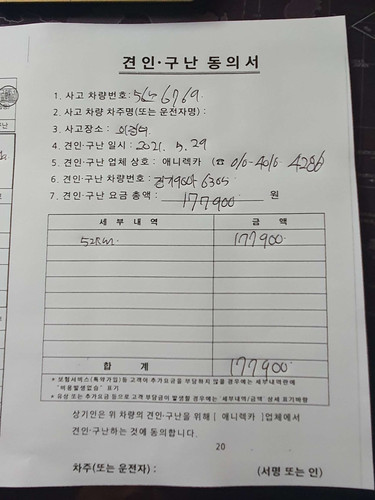 견인·구난 동의서
1. 사고 차량번호:
2. 사고 차량 차주명(또는 운전자명) :
3. 사고장소 :
4. 견인·구난 일시 : 2021. 5. 29
5. 견인·구난 업체 상호 : 애니렉카 (☎ 010-4016-4286
6. 견인·구난 차량번호 :
7. 견인·구난 요금 총액 : 177900 원
세 부 내 역 금 액
52km 177900
합 계 177900
* 보험서비스(특약가입)등 고객이 추가요금을 부담하지 않을 경우에는 세부내역란에
"비용발생없슴" 표기
* 유상 또는 추가요금 등으로 고객 부담금이 발생할 경우에는 '세부내역/금액' 상세 표기바람
상기인은 위 차량의 견인·구난을 위해 [ 애니렉카 ]업체에서
견인·구난하는 것에 동의합니다.
20
차주(또는 운전자) : (서명 또는 인)